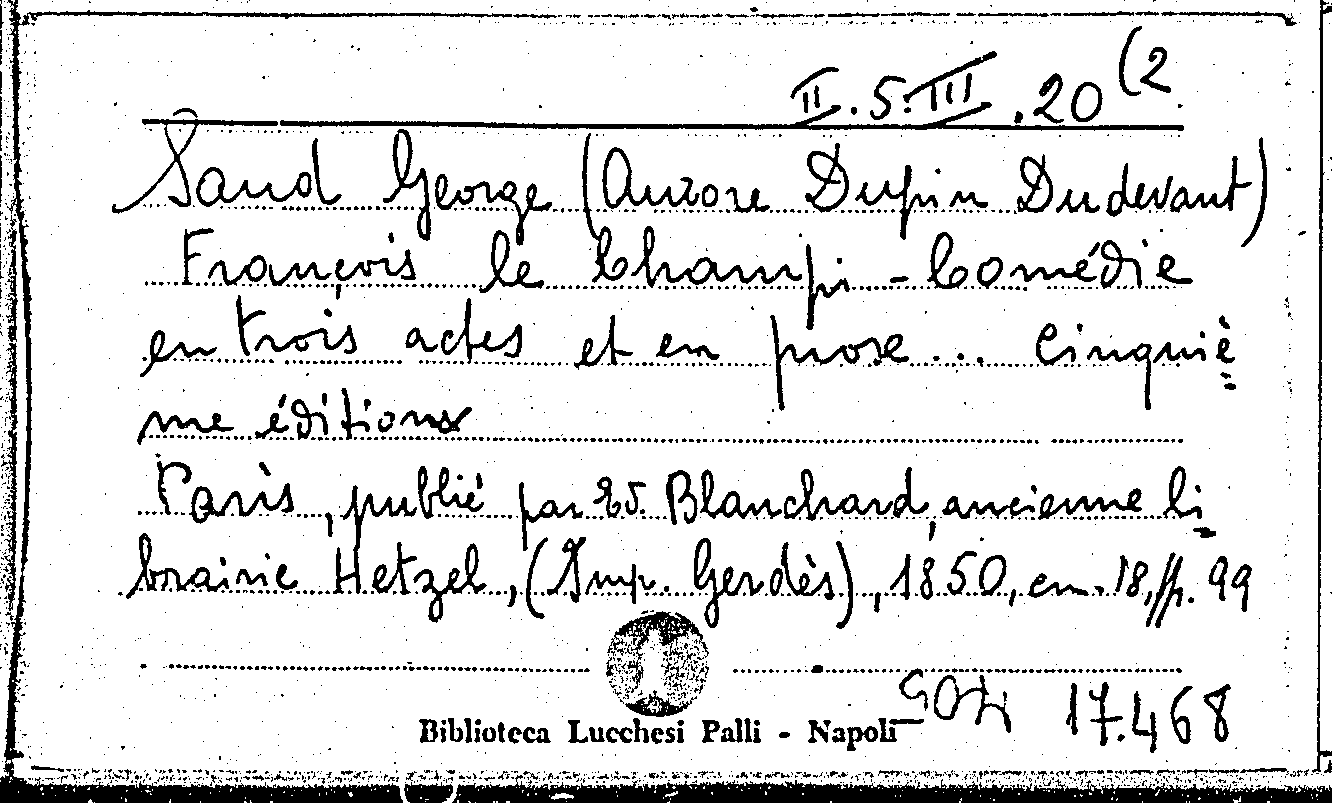 II.5.III.20(2
Sand George (Aurore Dupin Dudevant)
François le Champi - Comédie
en trois actes et en prose... Cinquiè=
me édition
Paris, publié par Ed. Blanchard, ancienne li-
brairie Hetzel, (Imp. Gerdès), 1850, cm. 18, pp. 99
17.468
Biblioteca Lucchesi Palli - Napoli